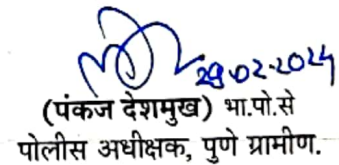 29-02-2024
(पंकज देशमुख) भा.पो.से
पोलीस अधीक्षक, पुणे ग्रामीण.